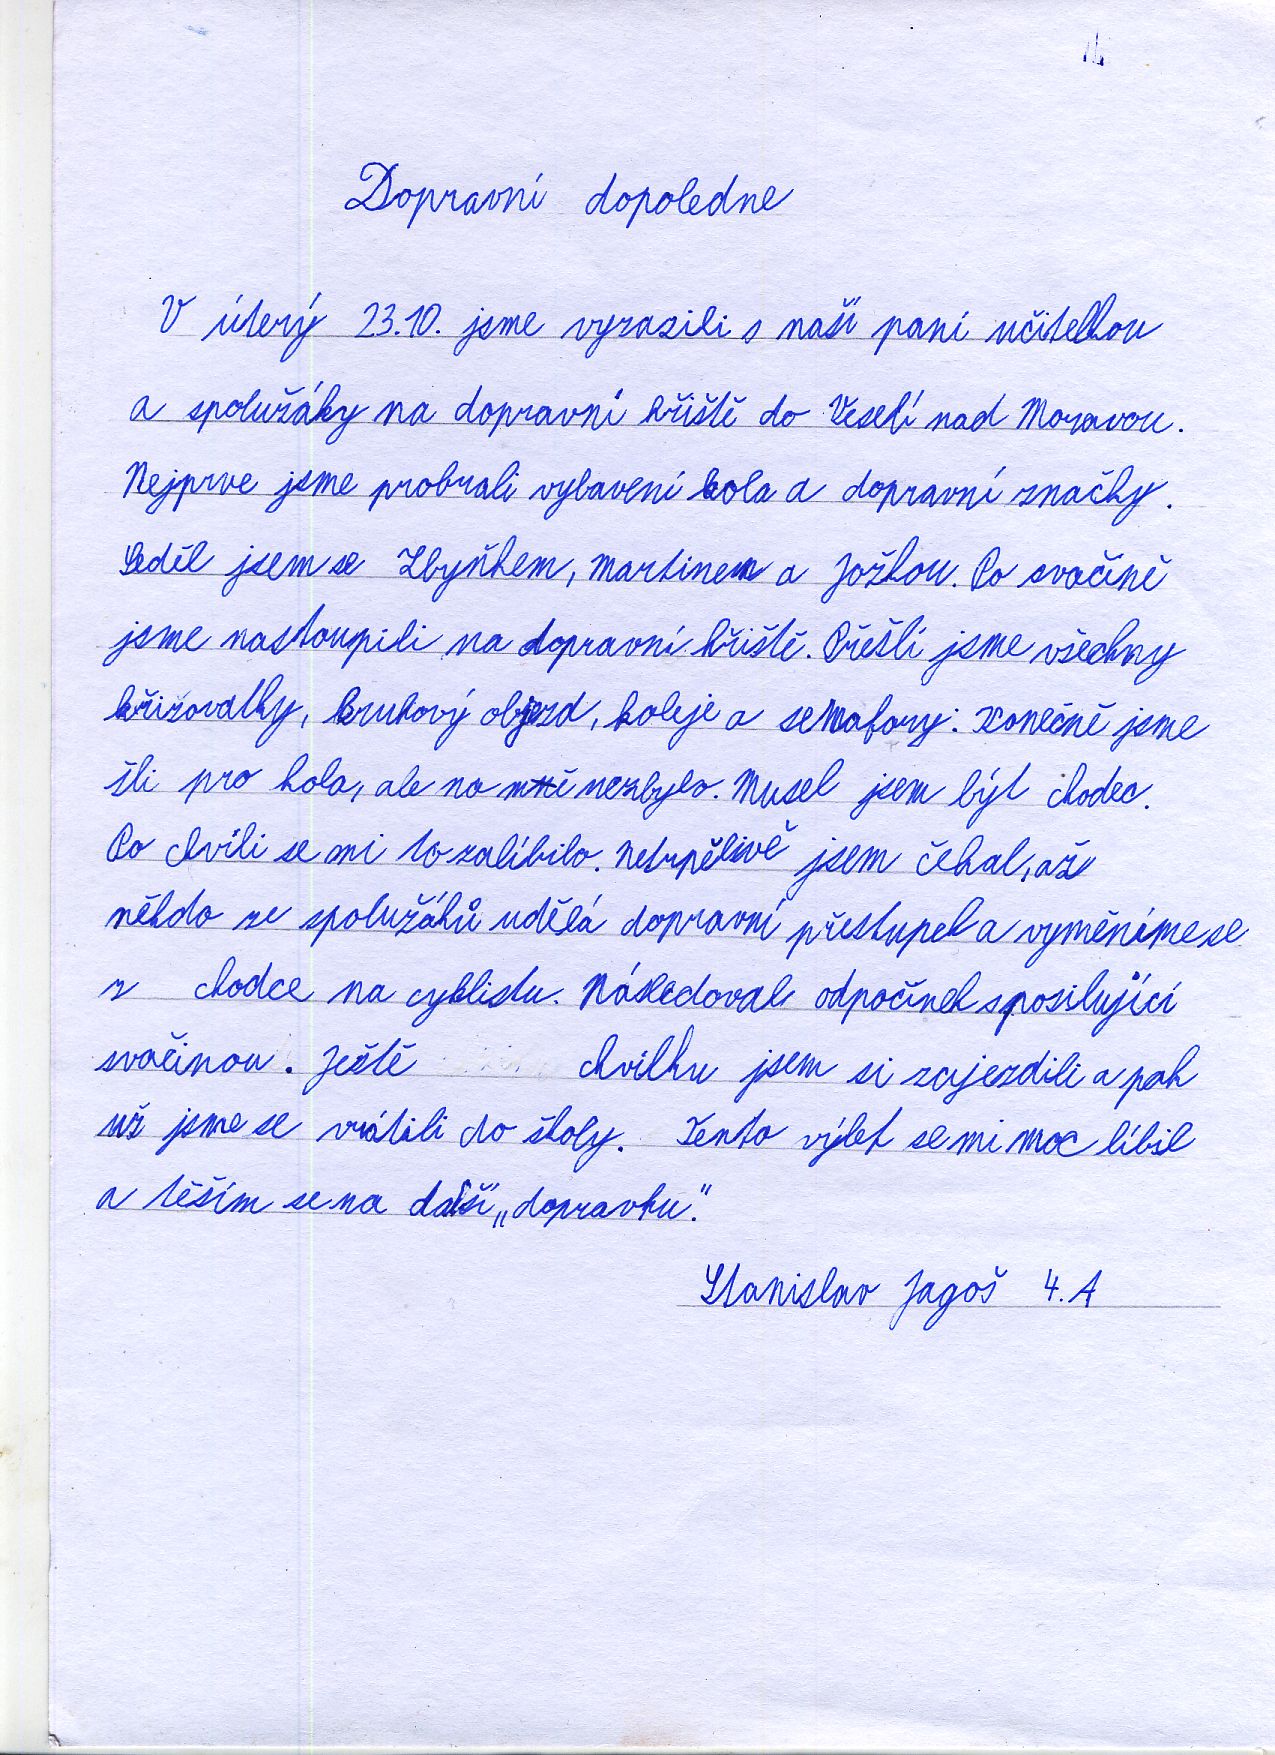 Dopravní dopoledne
V úterý 23.10. jsme vyrazili s naší paní učitelkou
a spolužáky na dopravní hřiště do Veselí nad Moravou.
Nejprve jsme probrali vybavení kola a dopravní značky.
Seděl jsem se Zbyňkem, Martinem a Jožkou. Po svačině
jsme nastoupili na dopravní hřiště. Přešli jsme všechny
křižovatky, kruhový objezd, koleje a semafory. Konečně jsme
šli pro kola, ale na mně nezbylo. Musel jsem být chodec.
Po chvíli se mi to zalíbilo. Netrpělivě jsem čekal, až
někdo ze spolužáků udělá dopravní přestupek a vyměníme se
z chodce na cyklistu. Následoval odpočinek s posilující
svačinou. Ještě chvilku jsem si zajezdili a pak
už jsme se vrátili do školy. Tento výlet se mi moc líbil
a těším se na další „dopravku."
Stanislav Jagoš 4.A